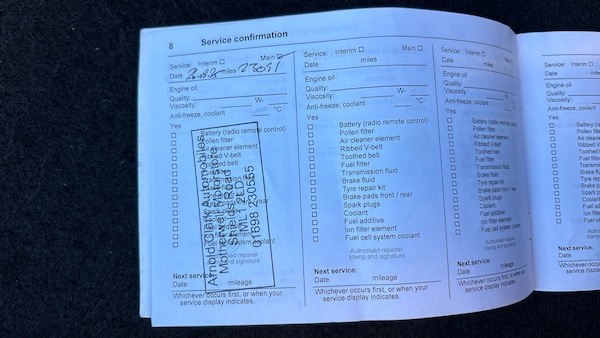 8 Service confirmation
Service: Interim Main
Date miles 23091
Engine oil
Quality:
Viscosity: W-
Anti-freeze, coolant °C
Yes
Battery (radio remote control)
Pollen filter
Air cleaner element
Ribbed V-belt
Toothed belt
Arnold Clark Automobiles
Motherwell Motorstore
Shields Road
01698
Next service:
Date mileage
Whichever occurs first, or when your
service display indicates.
Service: Interim Main
Date miles
Engine oil
Quality:
Viscosity: W-
Anti-freeze, coolant °C
Yes
Battery (radio remote control)
Pollen filter
Air cleaner element
Ribbed V-belt
Toothed belt
Fuel filter
Transmission fluid
Brake fluid
Tyre repair kit
Brake pads front / rear
Spark plugs
Coolant
Fuel additive
Ion filter element
Fuel cell system coolant
Authorised repairer
stamp and signature
Next service:
Date mileage
Whichever occurs first, or when your
service display indicates.
Service: Interim Main
Date miles
Engine oil
Quality:
Viscosity: W-
Anti-freeze, coolant °C
Yes
Battery (radio remote control)
Pollen filter
Air cleaner element
Ribbed V-belt
Toothed belt
Fuel filter
Transmission fluid
Brake fluid
Tyre repair kit
Brake pads front / rear
Spark plugs
Coolant
Fuel additive
Ion filter element
Fuel cell system coolant
Authorised repairer
stamp and signature
Next service:
Date mileage
Whichever occurs first, or when your
service display indicates.
Service: Interim
Date
Engine oil
Quality:
Viscosity:
Anti-freeze, coolant
Yes
Battery
Pollen filter
Air cleaner
Ribbed V
Toothed
Fuel filter
Brake fluid
Coolant
Next service:
Date
Whichever occurs
service display